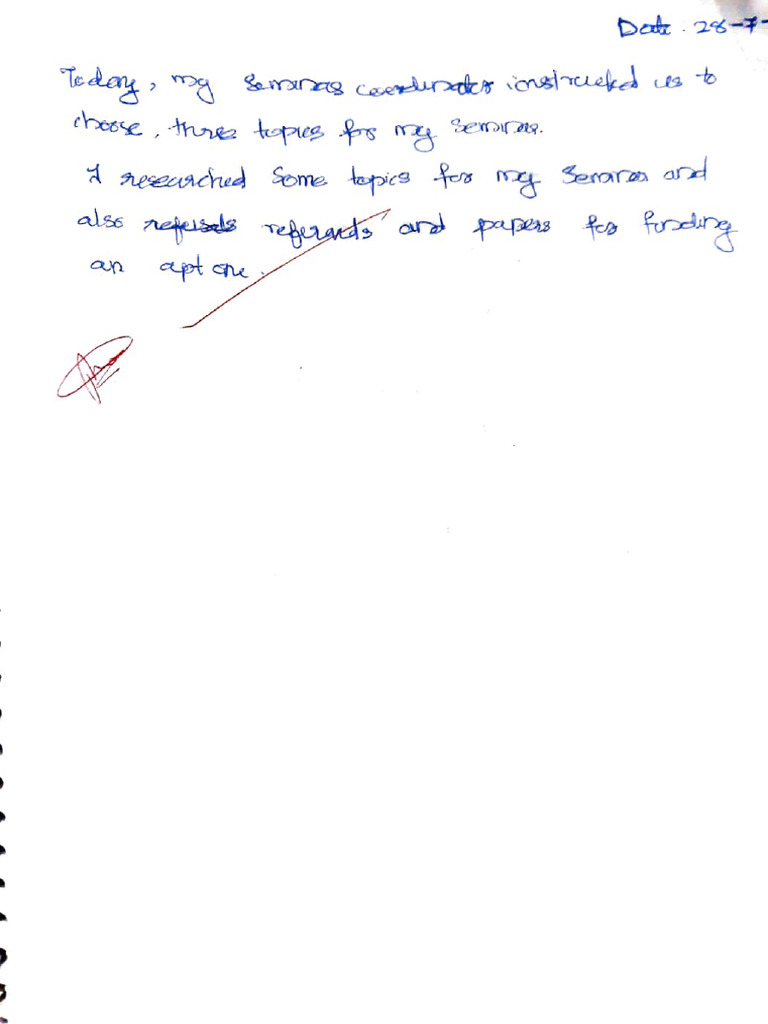 Date. 28-7-
Today, my seminar coordinator instructed us to
choose, three topics for my seminar.
I researched some topics for my seminar and
also referands and papers for finding
an apt one.